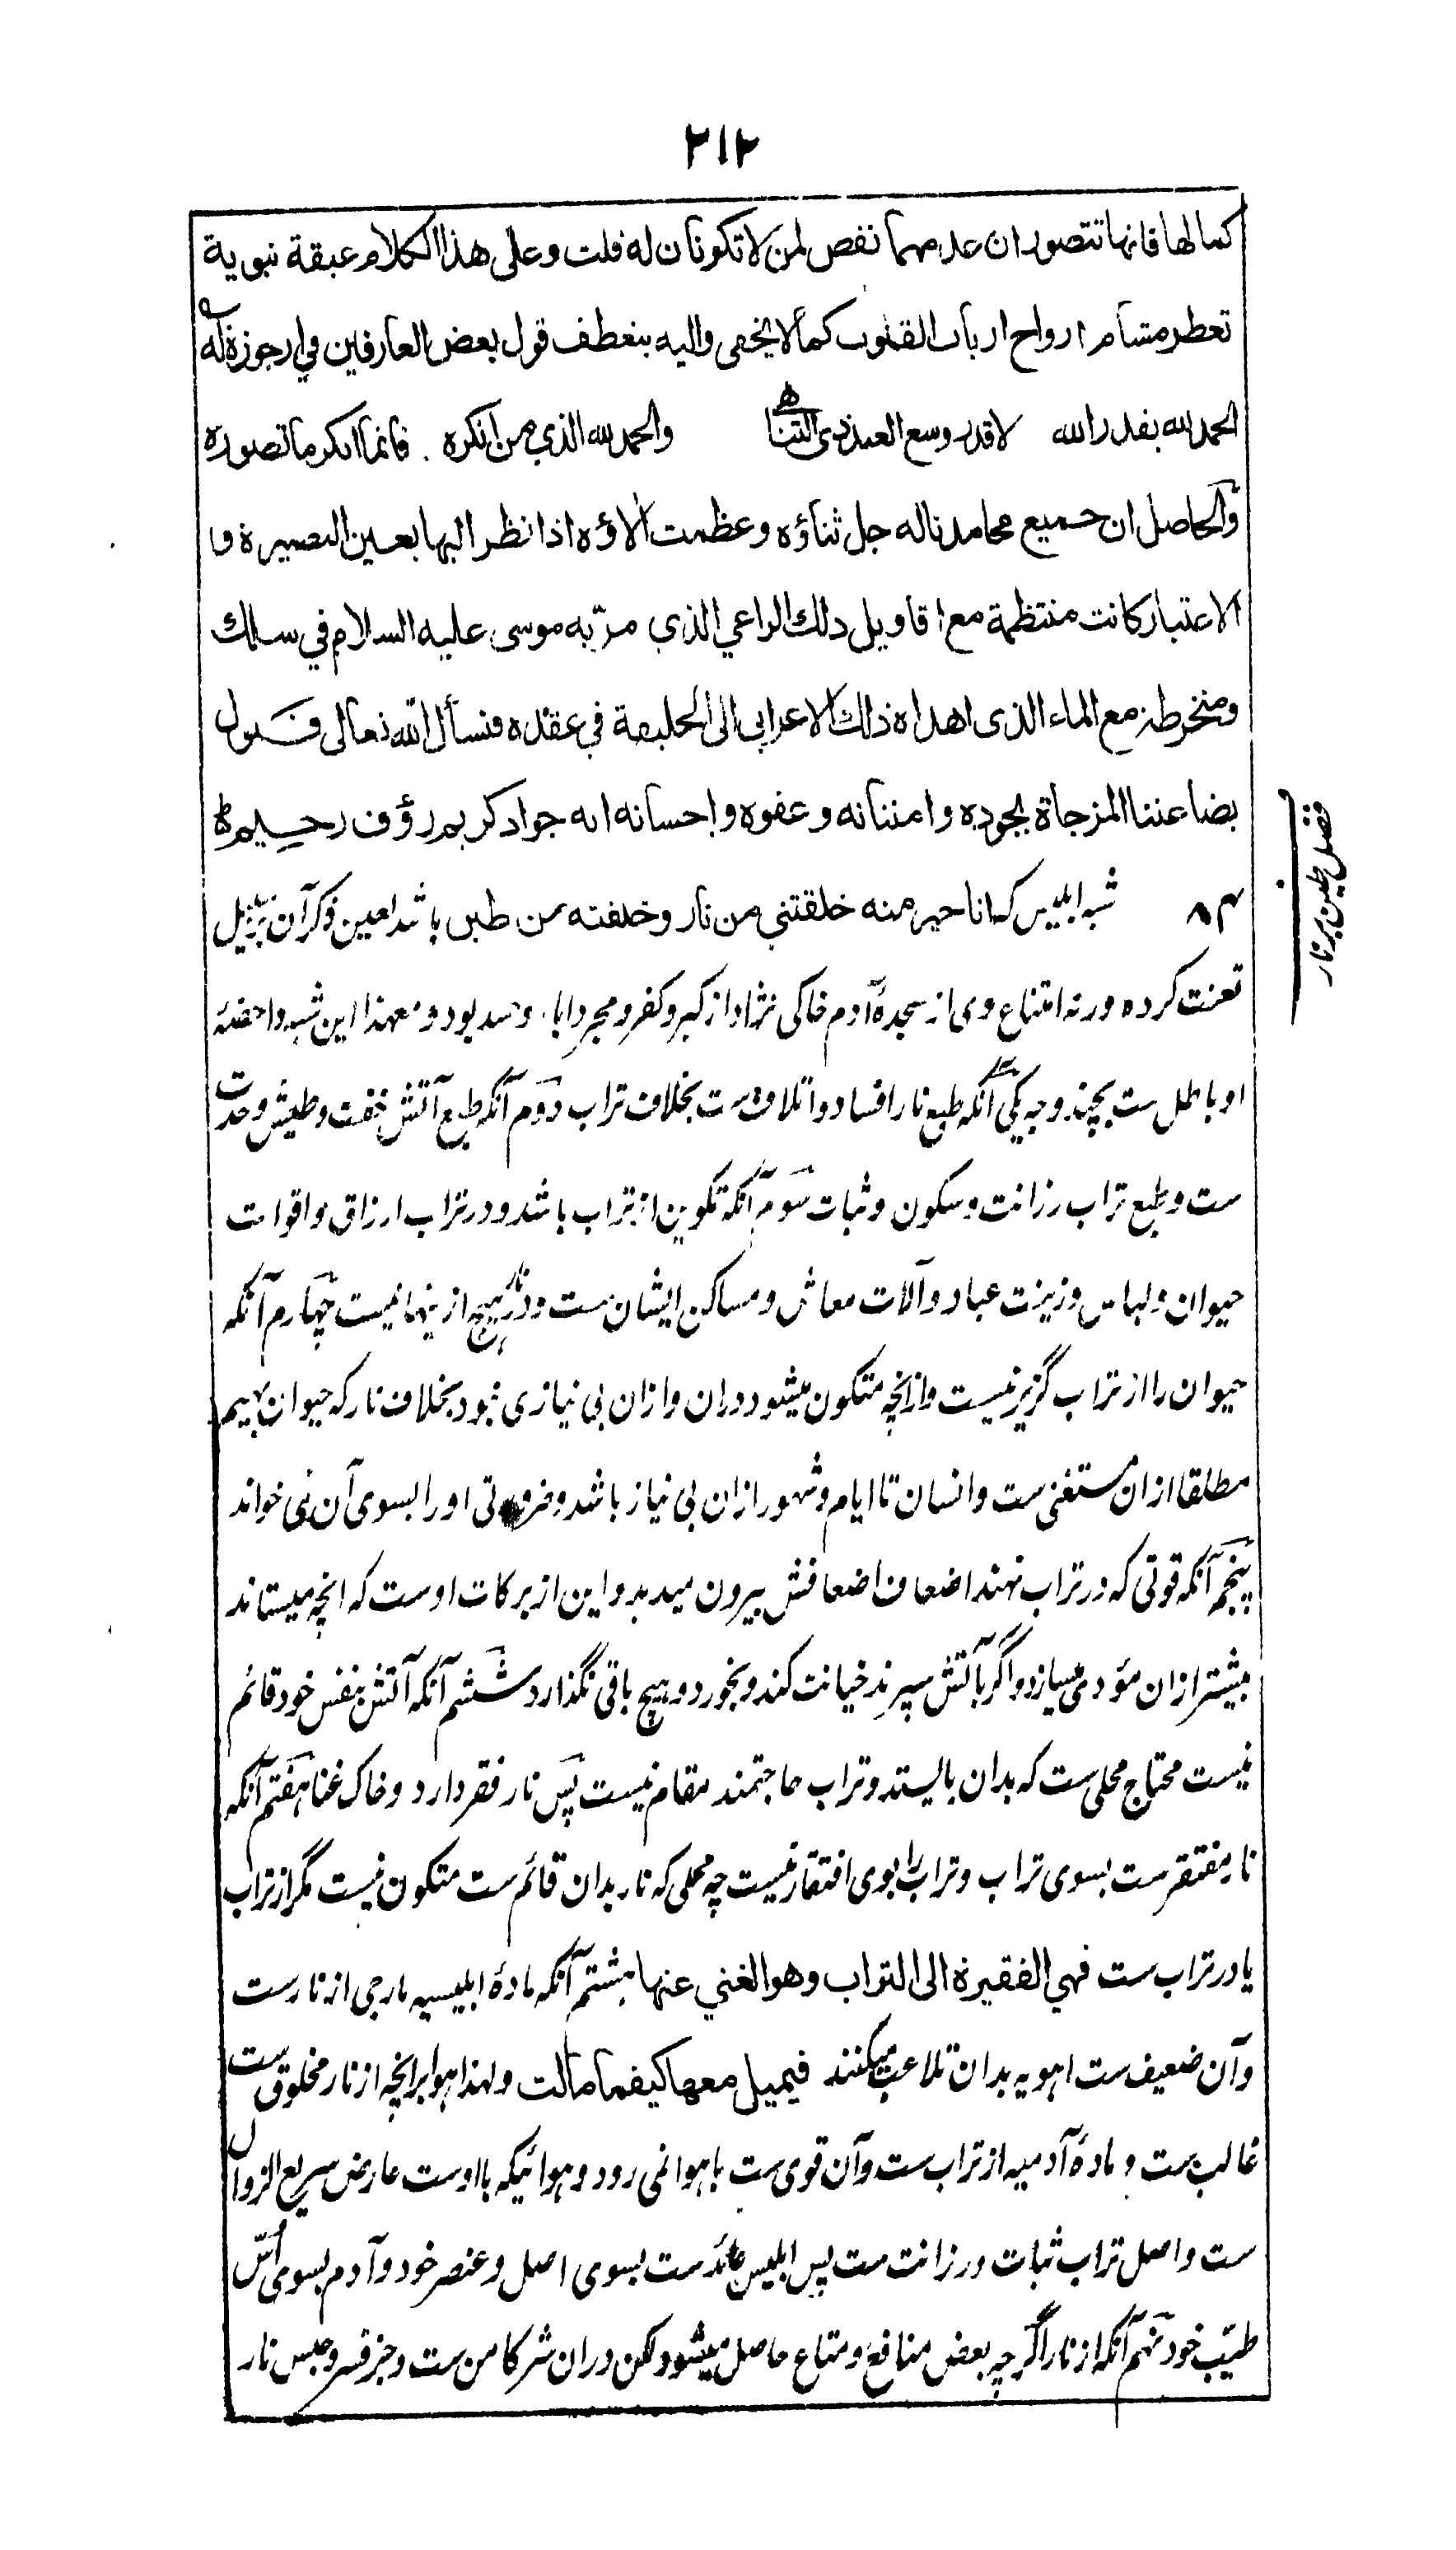 ۲۱۲
كمالها فانها تتصور ان عدمهما نقص لمن لا تكونان له قلت وعلى هذا الكلام عبقة نبوية
تعطر مشام ارواح ارباب القلوب كما لا يخفى واليه ينعطف قول بعض العارفين في ارجوزة له
الحمد لله بقدر الله لا قدر وسع العبد ذى التناهى والحمد لله الذي من انكره فانما انكر ما تصوره
والحاصل ان جميع محامدنا له جل ثناؤه وعظمت آلاؤه اذا نظر اليها بعين البصيرة وا
لاعتبار كانت منتظمة مع اقاويل ذلك الراعي الذي مرّ به موسى عليه السلام في سلك
ومنخرطة مع الماء الذى اهداه ذلك الاعرابي الى الخليفة في عقده فنسأل الله تعالى قبول
بضاعتنا المزجاة بجوده وامتنانه وعفوه واحسانه انه جواد كريم رؤف رحيم
فضل طين بر نار
۸۴ شبه ابلیس که انا خير منه خلقتني من نار وخلقته من طين باشد لعین ذکر آن بر سبیل
تعنت کرده ورنه امتناع وی از سجدهٔ آدم خاکی نژاد از کبر و کفر و مجرد ابا و حسد بود و معهذا این شبه داحضهٔ
او باطل ست بچند وجه یکی آنکه طبع نار افساد و اتلاف ست بخلاف تراب دوم آنکه طبع آتش خفت و طیش و حدت
ست و طبع تراب رزانت و سکون و ثبات سوم آنکه تکوین از تراب باشد و در تراب ارزاق و اقوات
حیوان و لباس و زینت عباد و آلات معاش و مساکن ایشان ست و در نار هیچ ازینها نیست چهارم آنکه
حیوان را از تراب گزیر نیست و ازانچه متکون میشود دران و ازان بی نیازی نبود بخلاف نار که حیوان بهیم
مطلقا ازان مستغنی ست و انسان تا ایام و شهور ازان بی نیاز باشد و ضرورتی او را بسوی آن نمی خواند
پنجم آنکه قوتی که در تراب نهند اضعاف اضعافش بیرون میدهد و این از برکات اوست که انچه میستاند
بیشتر ازان مؤدی میسازد و اگر بآتش سپرند خیانت کند و بخورد و هیچ باقی نگذارد ششم آنکه آتش بنفس خود قائم
نیست محتاج محلی ست که بدان بایستد و تراب حاجتمند مقام نیست پس نار فقر دارد و خاک غنا هفتم آنکه
نار مفتقر ست بسوی تراب و تراب را بوی افتقار نیست چه محلی که نار بدان قائم ست متکون نیست مگر از تراب
یا در تراب ست فهي الفقيرة الى التراب وهو الغني عنها هشتم آنکه مادهٔ ابلیسیه مارجی از نار ست
و آن ضعیف ست اهویه بدان تلاعب میکنند فيميل معها كيفما مالت ولهذا هوا برانچه از نار مخلوق ست
غالب ست و مادهٔ آدمیه از تراب ست و آن قوی ست با هوا نمی رود و هوائیکه با اوست عارض سریع الزوال
ست و اصل تراب ثبات و رزانت ست پس ابلیس عائد ست بسوی اصل و عنصر خود و آدم بسوی اُسّ
طیّب خود نهم آنکه از نار اگرچه بعض منافع و متاع حاصل میشود لکن دران شر کامن ست و جز قسر و حبس نار